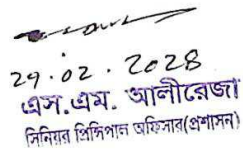 29.02.2028
এস.এম. আলীরেজা
সিনিয়র প্রিন্সিপাল অফিসার(প্রশাসন)